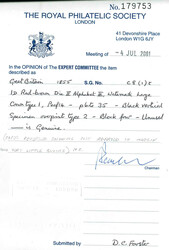 No. 179753
THE ROYAL PHILATELIC SOCIETY
LONDON
41 Devonshire Place
London W1G 6JY
Meeting of - 4 JUL 2001
In the OPINION of the EXPERT COMMITTEE the item
described as
Great Britain 1855 S.G. No. C8(1)c
1d Red-brown Die II Alphabet II, Watermark Large
Crown type 1, Perf 14 - plate 35 - Black vertical
Specimen overprint type 2 - Block four - Unused
is Genuine
Chairman
Submitted by D. C. Forster